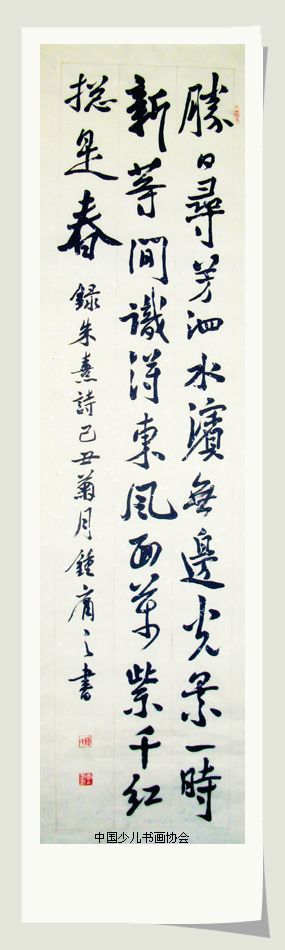 勝日尋芳泗水濱無邊光景一時
新等閒識得東風面萬紫千紅
揔是春錄朱熹詩己丑菊月鍾之書
中国少儿书画协会